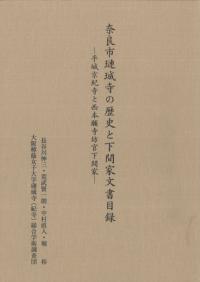 奈良市璉珹寺の歴史と下間家文書目録
―平城京紀寺と西本願寺坊官下間家―
長谷川伸三・荒武賢一朗・中村直人・堀 裕
大阪樟蔭女子大学璉珹寺(紀寺)総合学術調査団